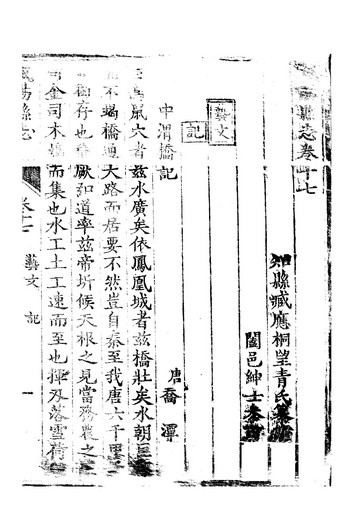 縣志卷十七
知縣臧應桐望青氏纂
闔邑紳士參
藝文
記
中渭橋記
唐喬潭
鼠穴者茲水廣矣依鳳凰城者茲橋壯矣水朝巨
不竭橋通大路而居要不然豈自秦至我唐六千里
猶存也厥知道率茲帝圻候天根之見當務農之
司金司木
而集也水工土工速而至也揮刃落雪荷
陽縣志
卷十七
藝文
記
一